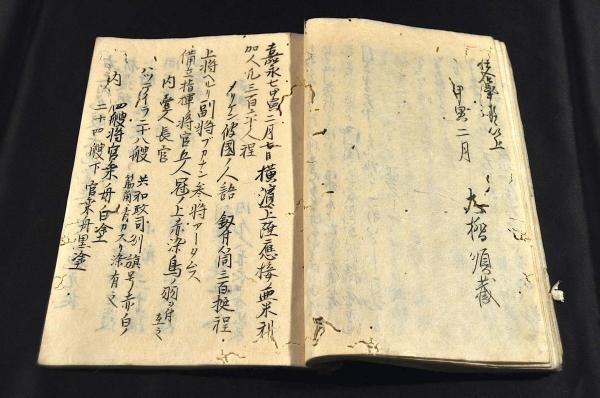 甲寅二月
嘉永七甲寅二月十日横濵上陸應接亜米利
加人凡三百六十人程
彼國ノ人語 剱付筒三百挺程
上将ヘルリ副将ブカナン参将アータムス
備立指揮将官兵人冠ノ上赤染鳥ノ羽ヲ付
内壹人長官
バツテイラ二十八艘 共和政司別旗号ノ赤白ノ
筋角青カスリ染有之
内 四艘将官乗舟白塗
二十四艘下官乗舟黒塗